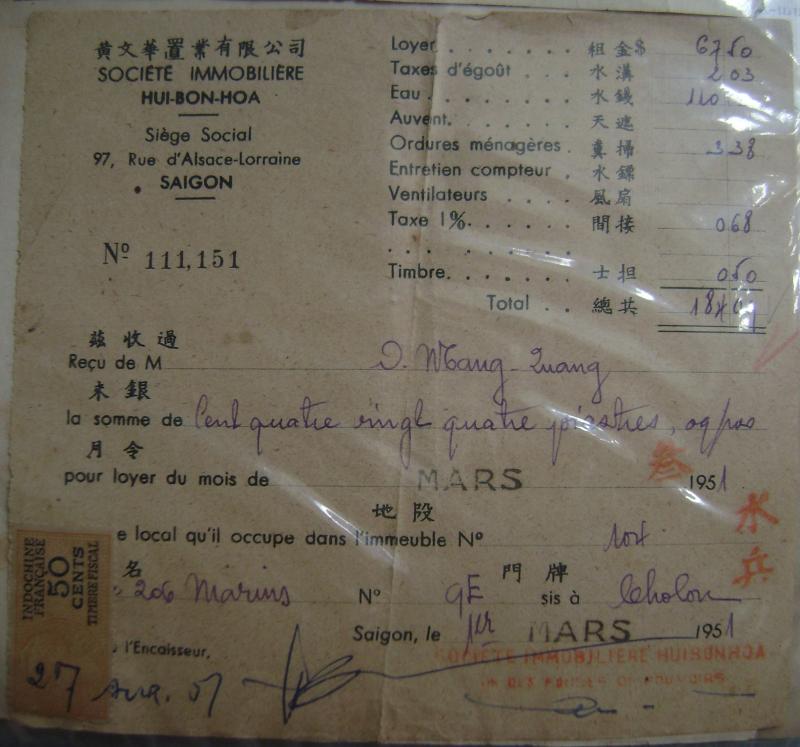 黃文華置業有限公司
SOCIÉTÉ IMMOBILIÈRE
HUI-BON-HOA
Siège Social
97, Rue d'Alsace-Lorraine
SAIGON
Nº 111,151
Loyer . . . . . . . 租金$ 67 50
Taxes d'égoût . . . 水溝 2 03
Eau . . . . . . . . 水錢 110
Auvent. . . . . . . 天遮
Ordures ménagères . 糞掃 3 38
Entretien compteur . 水鏢
Ventilateurs . . . . 風扇
Taxe 1% . . . . . . 間接 0 68
Timbre. . . . . . . 士担 0 50
Total . . 總共
茲收過
Reçu de M
來銀
la somme de Cent quatre vingt quatre piastres,
月令
pour loyer du mois de MARS 1951
叁
地段
e local qu'il occupe dans l'immeuble Nº 104
水兵
名 門牌
206 Marins Nº 9E sis à Cholon
Saigon, le 1er MARS 1951
l'Encaisseur,
SOCIÉTÉ IMMOBILIÈRE HUIBONHOA
INDOCHINE FRANÇAISE
50 CENTS
TIMBRE FISCAL
27